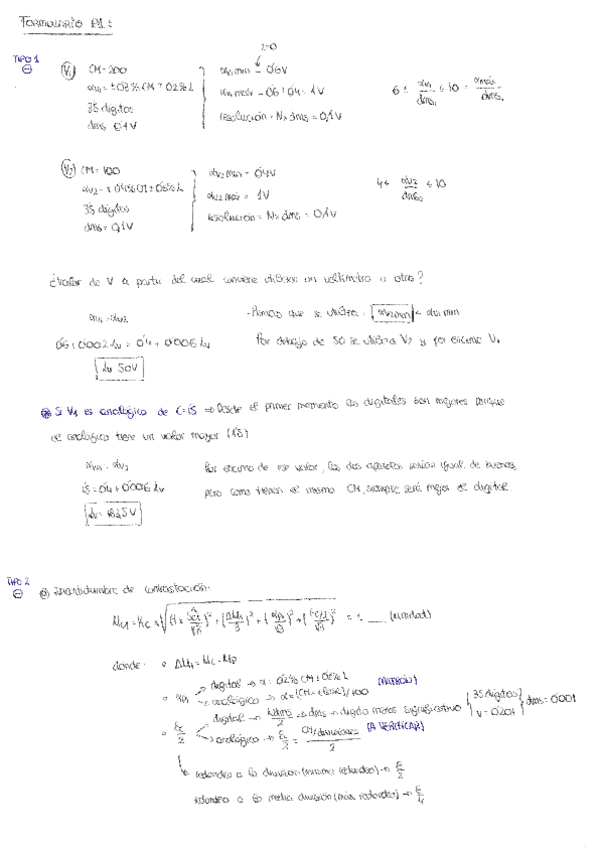 FORMULARIO P1:
TIPO 1
V₁ CM=200
3'5 digitos
dms 0'1V
αv₁ min = 0'6V
αv₁ max = 0'6+0'4 = 1V
resolución = N x dms = 0'1V
V₂ CM=100
3'5 digitos
dms = 0'1V
αv₂ min = 0'4V
αv₂ max = 1V
resolución = N x dms = 0'1V
¿Valor de V a partir del cual conviene utilizar un voltímetro u otro?
αv₁ = αv₂
0'6+0'002Lv = 0'4+0'006Lv
Lv 50V
- Primero que se utiliza: αv₂ min < αv₁ min
Por debajo de 50 se utiliza V₂ y por encima V₁
Si V₁ es analógico de C=1'5 ⇒ Desde el primer momento los digitales son mejores porque
el analógico tiene un valor mayor (1'5)
αv₁ = αv₂
1'5 = 0'4 + 0'006 Lv
Por encima de ese valor, los dos aparatos serían igual de buenos,
pero como tienen el mismo CM, siempre será mejor el digital.
TIPO 2
Incertidumbre de contrastación:
= ± ___ (unidad)
donde:
digital → α = 0'2% CM ± 0'6% L (PATRÓN)
analógico → α = (CM · clase)/100
digital → N·dms/2 → dms → digito menos significativo { 3'5 digitos V = 0'201 } dms = 0'001
analógico → = CM/divisiones / 2 (A VERIFICAR)
redondeo a la división (mínimo redondeo) → E/2
redondeo a la media división (más redondeo) → E/4